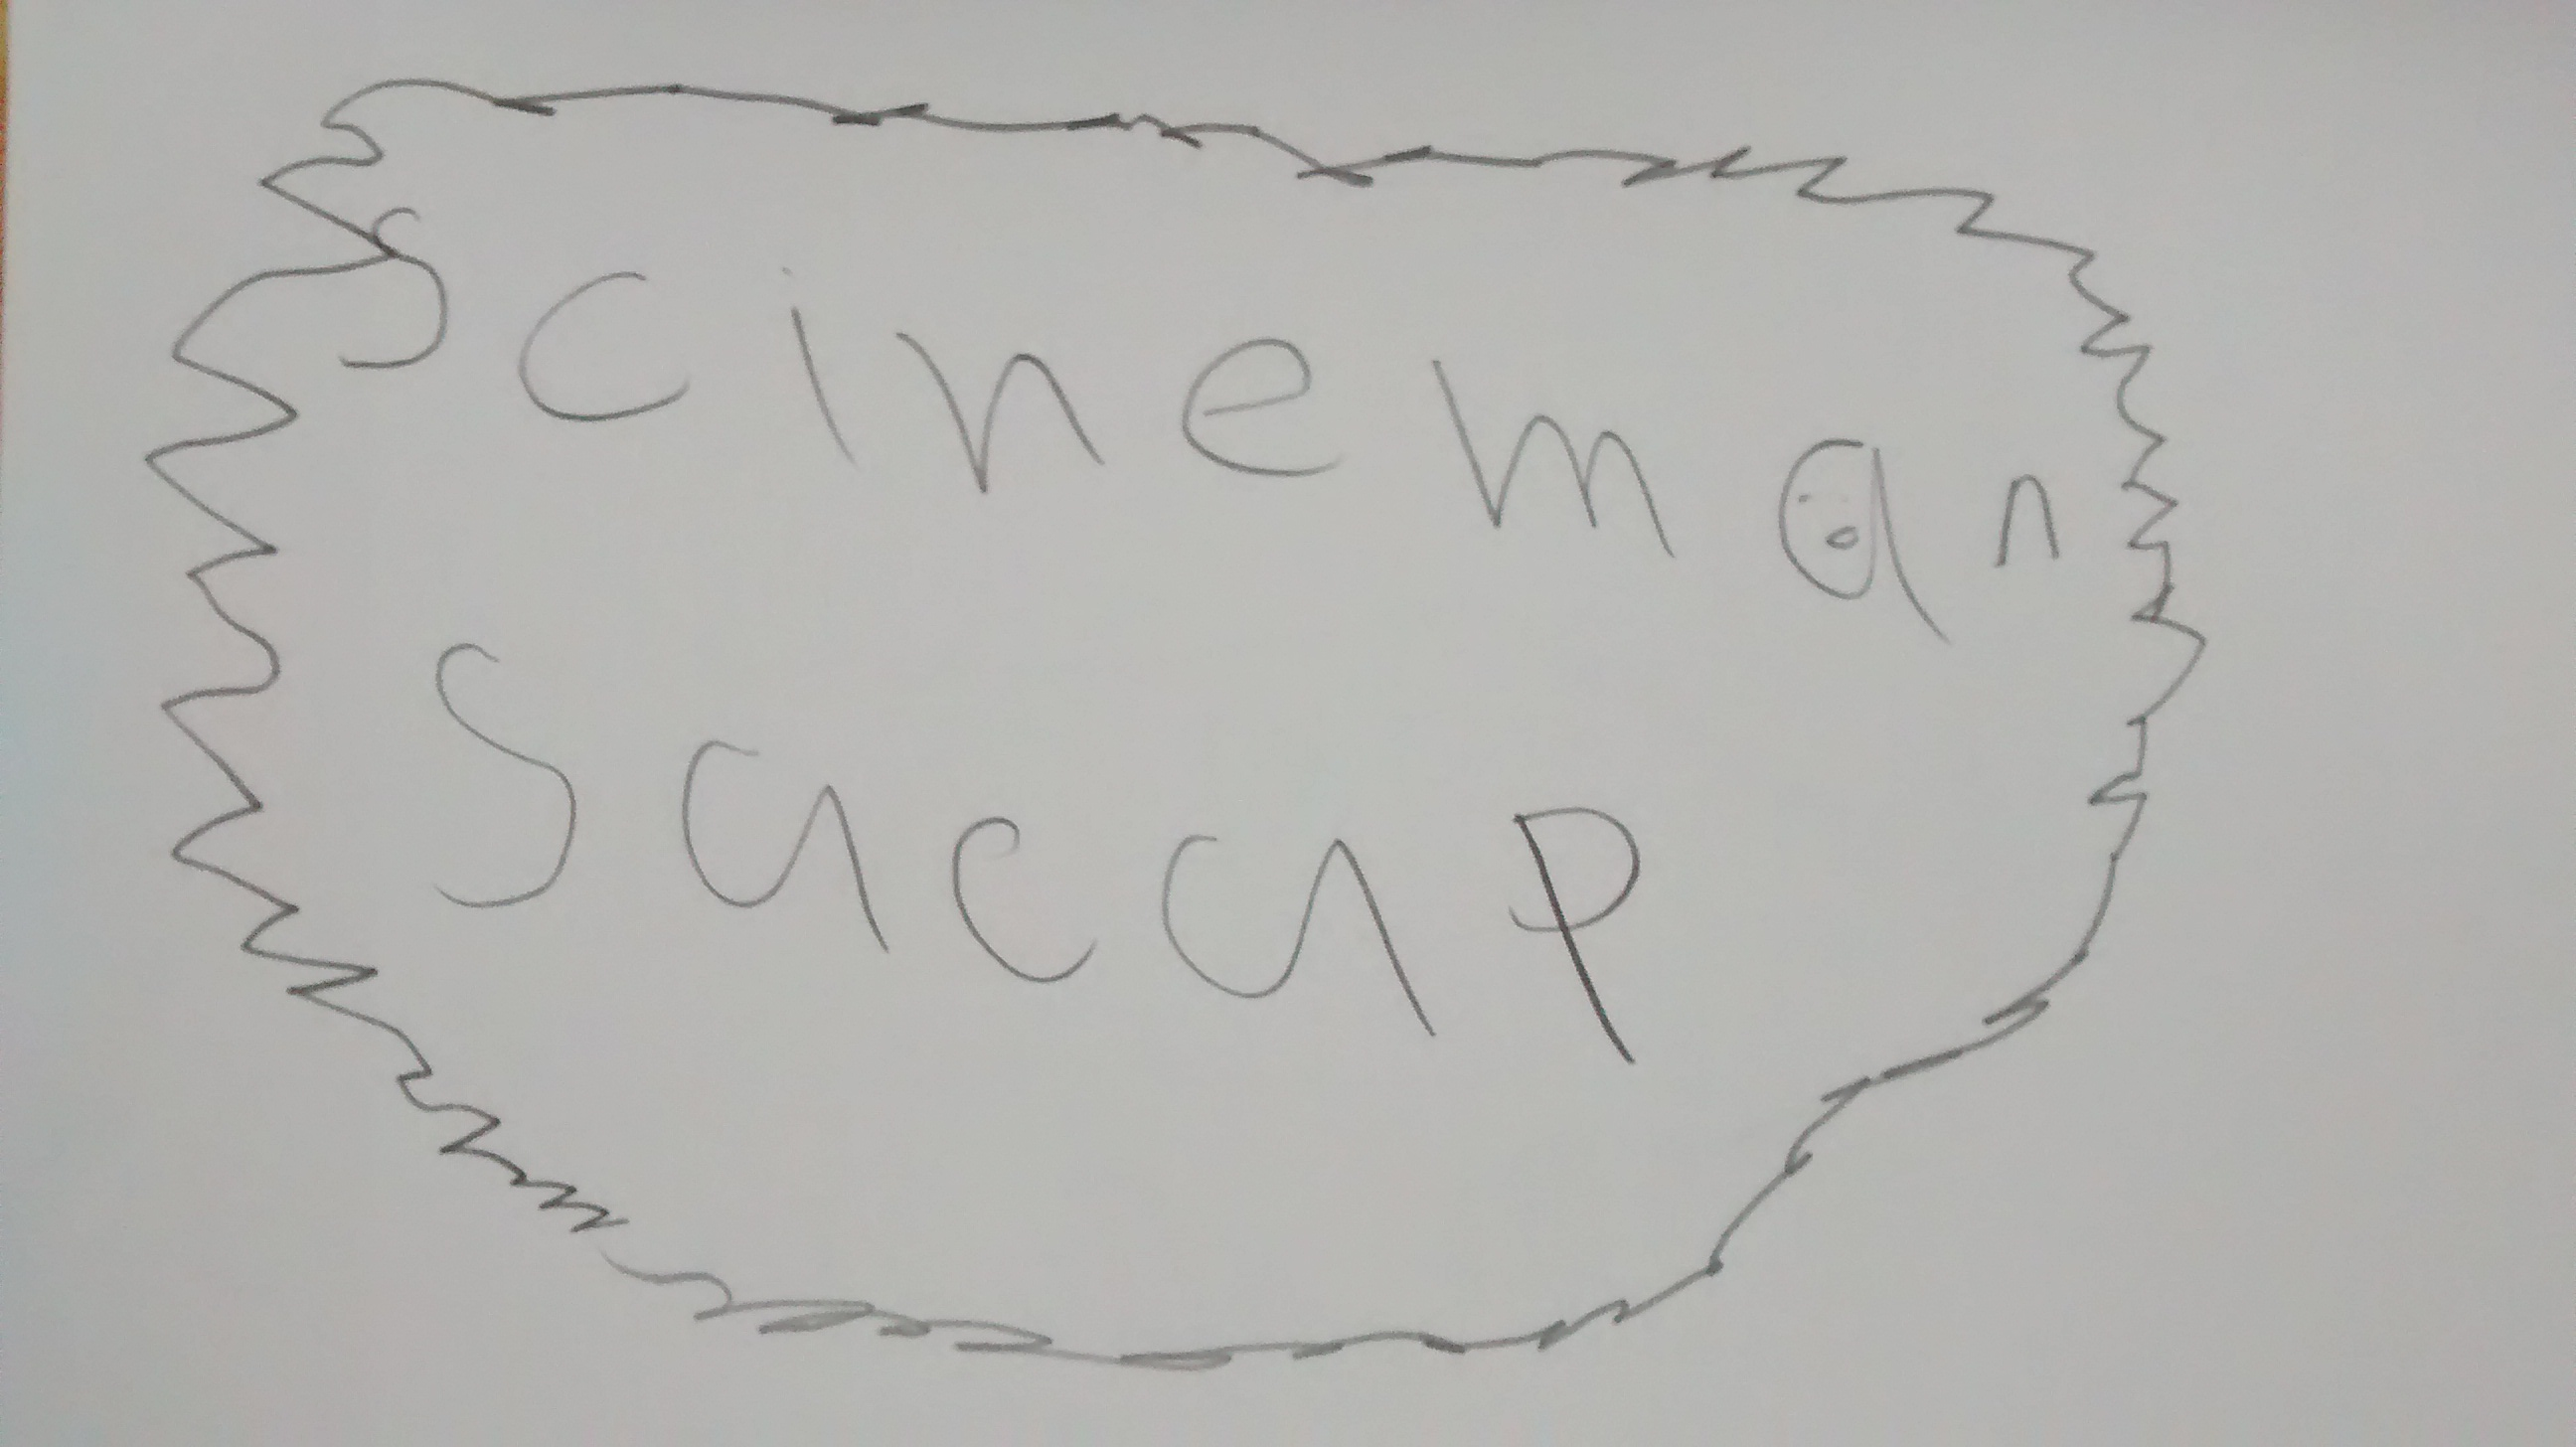 Scineman
Sacap